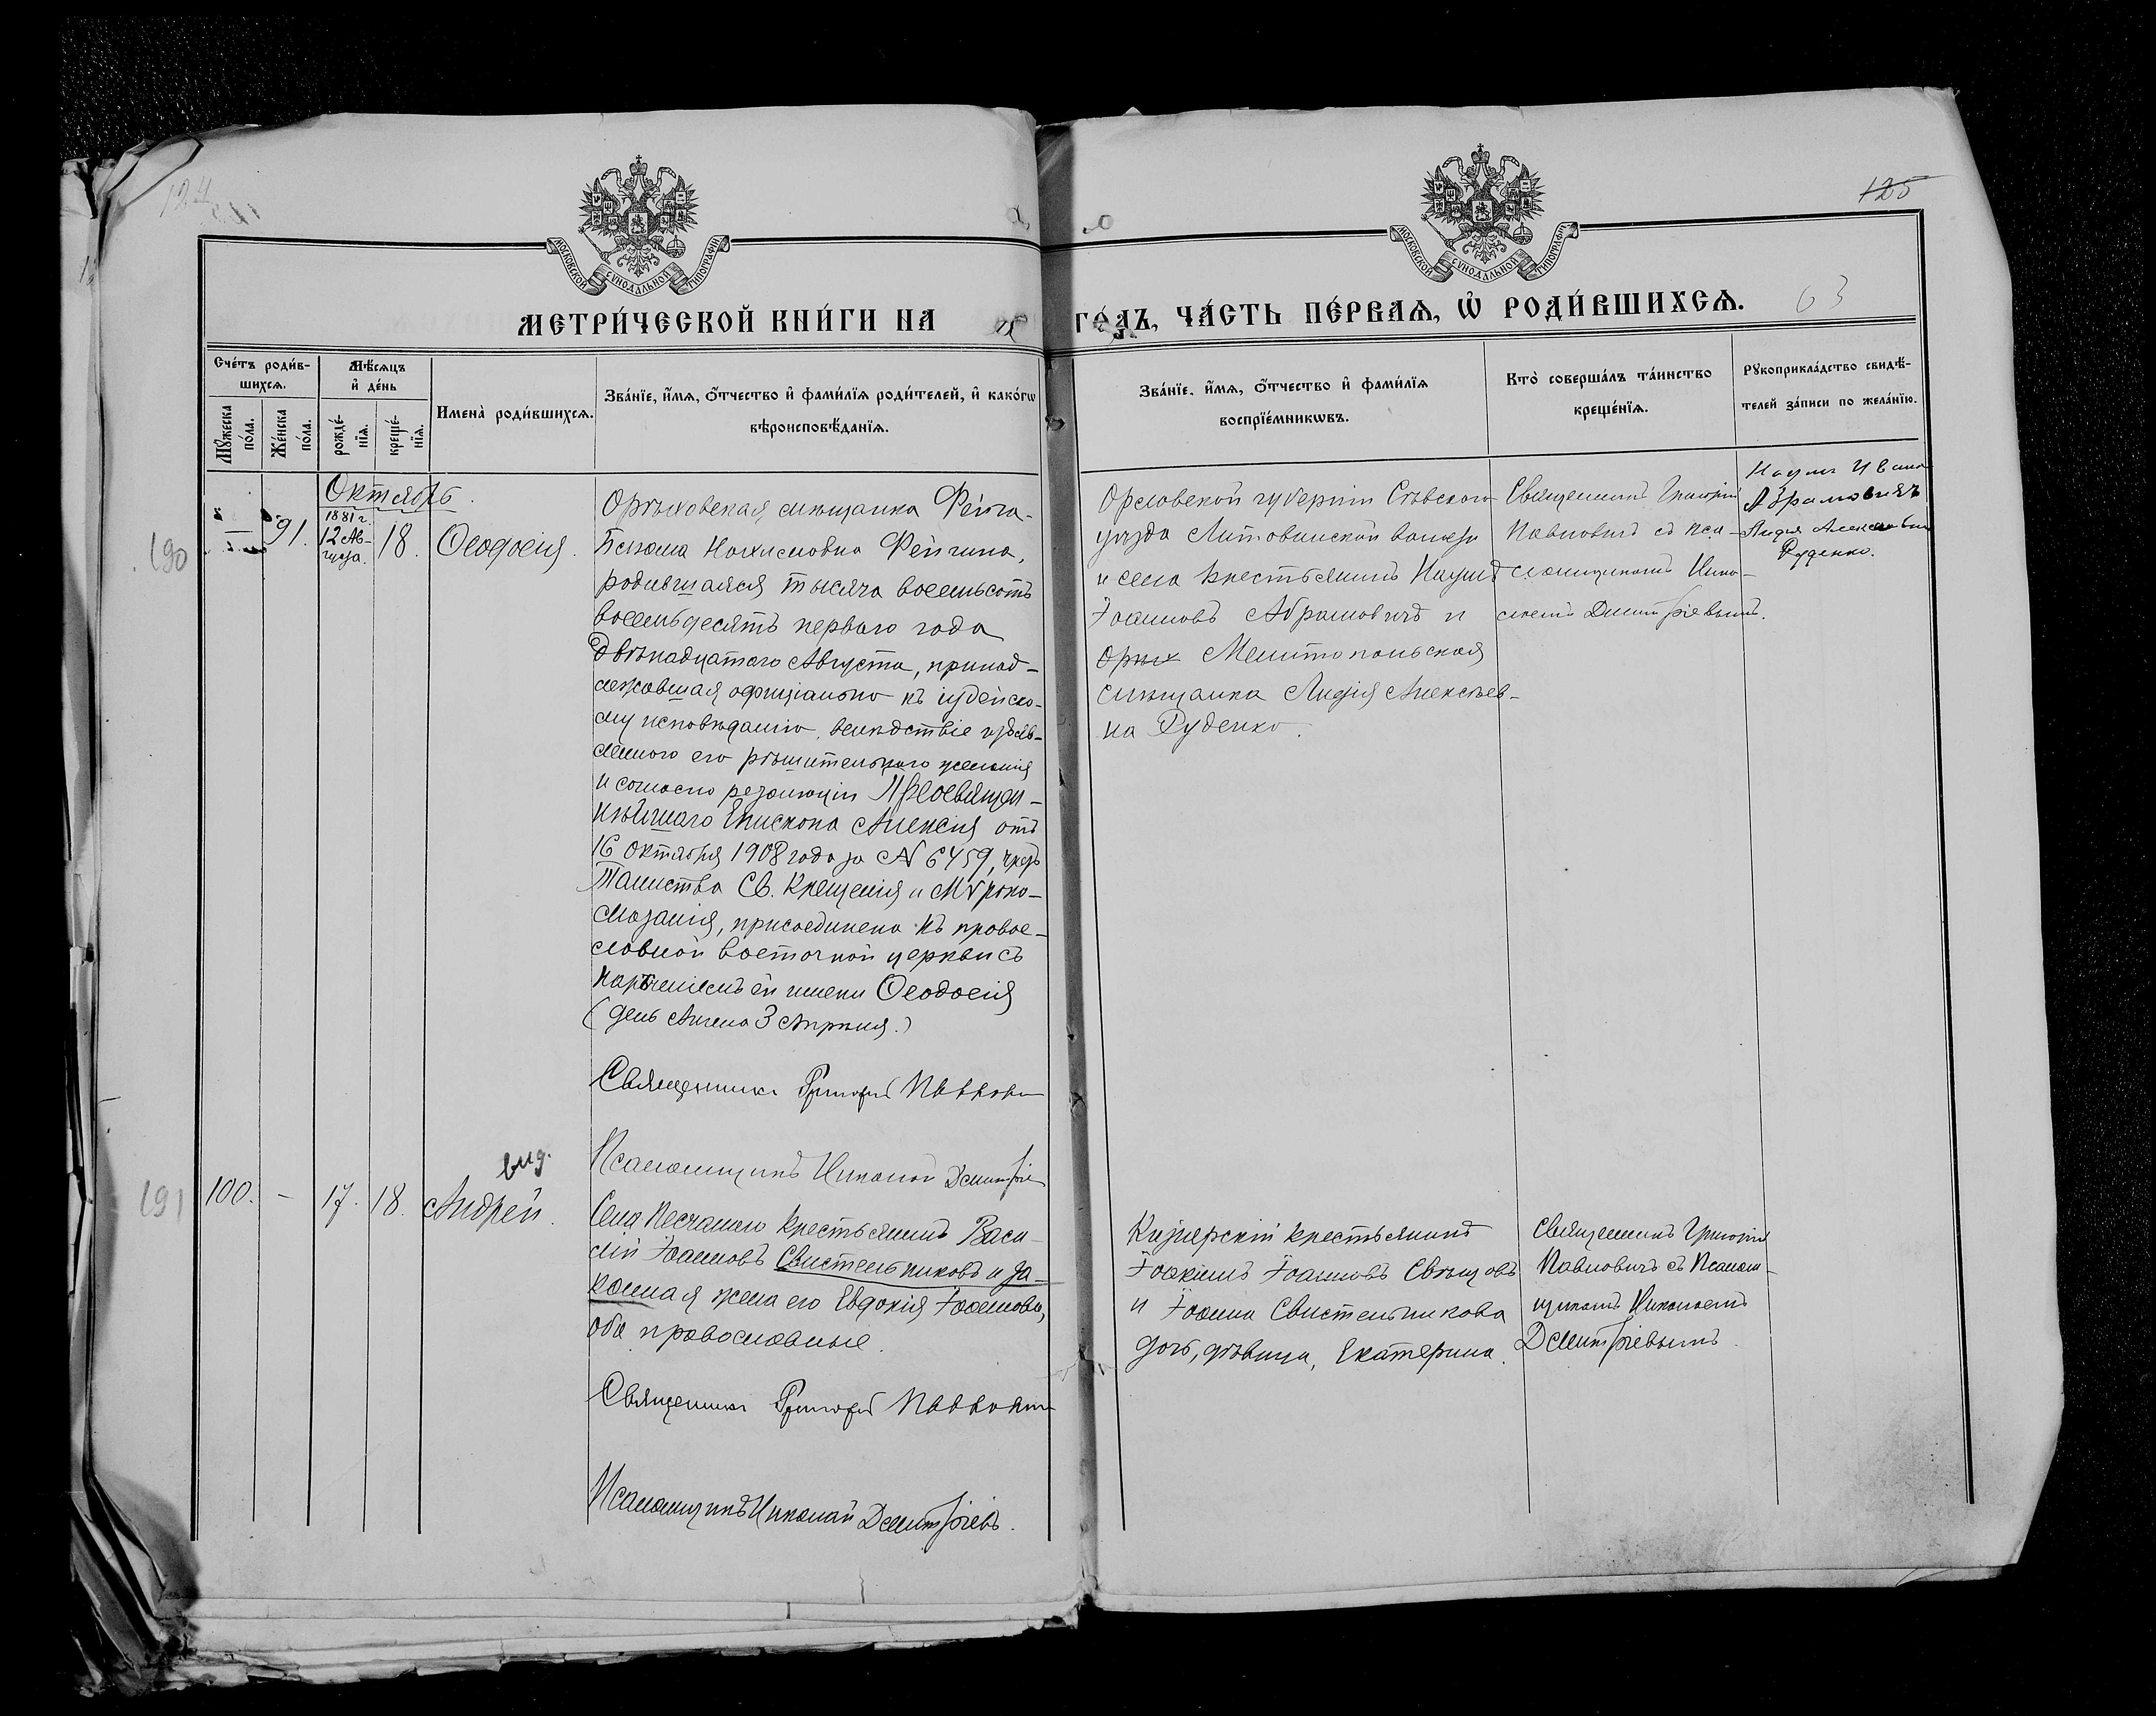 124
125
МОСКОВСКОЙ СУНОДАЛЬНОЙ ТИПОГРАФІИ
МОСКОВСКОЙ СУНОДАЛЬНОЙ ТИПОГРАФІИ
МЕТРИ́ЧЕСКОЙ КНИ́ГИ НА
ГО́ДЪ, ЧА́СТЬ ПЕ́РВАѦ, Ѡ҆ РОДИ́ВШИХСѦ.
63
Сче́тъ роди́в-
шихсѧ.
Мѣ́сѧцъ
и҆ де́нь
Мꙋ́жеска
по́ла.
Же́нска
по́ла.
рожде́-
нїѧ.
креще́-
нїѧ.
Имена̀ роди́вшихсѧ.
Зва́нїе, и҆́мѧ, ѻ҆́тчество и҆ фами́лїѧ роди́телей, и҆ како́гѡ
вѣроисповѣ́данїѧ.
Зва́нїе, и҆́мѧ, ѻ҆́тчество и҆ фами́лїѧ
воспрїе́мникѡвъ.
Кто̀ соверша́лъ та́инство
креще́нїѧ.
Рꙋкоприкла́дство свидѣ́-
телей за́писи по жела́нїю.
Октябрь.
190
91.
1881 г.
12 Ав-
густа.
18.
Ѳеодосія.
Орѣховская мѣщанка Фейга-
Бейюма Нохимовна Фейгина,
родившаяся тысяча восемьсотъ
восемьдесятъ перваго года
двѣнадцатаго Августа, принад-
лежавшая офиціально къ іудейско-
му исповѣданію, вслѣдствіе изъяв-
леннаго его рѣшительнаго желанія
и согласно резолюціи Преосвящен-
нѣйшаго Епископа Алексія отъ
16 октября 1908 года за № 6459, чрезъ
Таинства Св. Крещенія и Мѵропо-
мазанія, присоединена къ право-
славной восточной церкви съ
нареченіемъ ей имени Ѳеодосія
(день Ангела 3 Апрѣля.)
Священникъ Григорій Павловичъ
Псаломщикъ Николай Димитріев
Орловской губерніи Сѣвского
уѣзда Литовинской волости
и села крестьянинъ Наумъ
Іоанновъ Абрамовичъ и
Орѣх Мелитопольская
мѣщанка Лидія Алексѣев-
на Руденко.
Священникъ Григорій
Павловичъ съ пса-
ломщикомъ Нико-
лаемъ Димитріевымъ.
Наумъ Ивано
Абрамовичъ
Лидія Алексѣевна
Руденко.
вид.
191
100.
-
17.
18.
Андрей.
Села Песчанаго крестьянинъ Васи-
лій Іоанновъ Свистельниковъ и за-
конная жена его Евдокія Іоаннова,
оба православные.
Священникъ Григорій Павловичъ
Псаломщикъ Николай Димитріевъ.
Кизіерскій крестьянинъ
Іоакимъ Іоанновъ Свѣщовъ
и Іоанна Свистельникова
дочь, дѣвица, Екатерина.
Священникъ Григорій
Павловичъ съ Псалом-
щикомъ Николаемъ
Димитріевымъ.